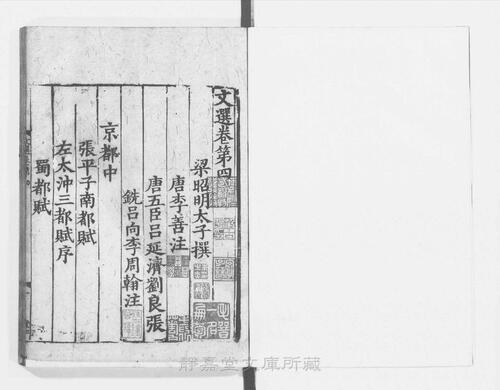 文選卷第四
梁昭明太子撰
唐李善注
唐五臣呂延濟劉良張
銑呂向李周翰注
京都中
張平子南都賦
左太沖三都賦序
蜀都賦
靜嘉堂文庫所藏